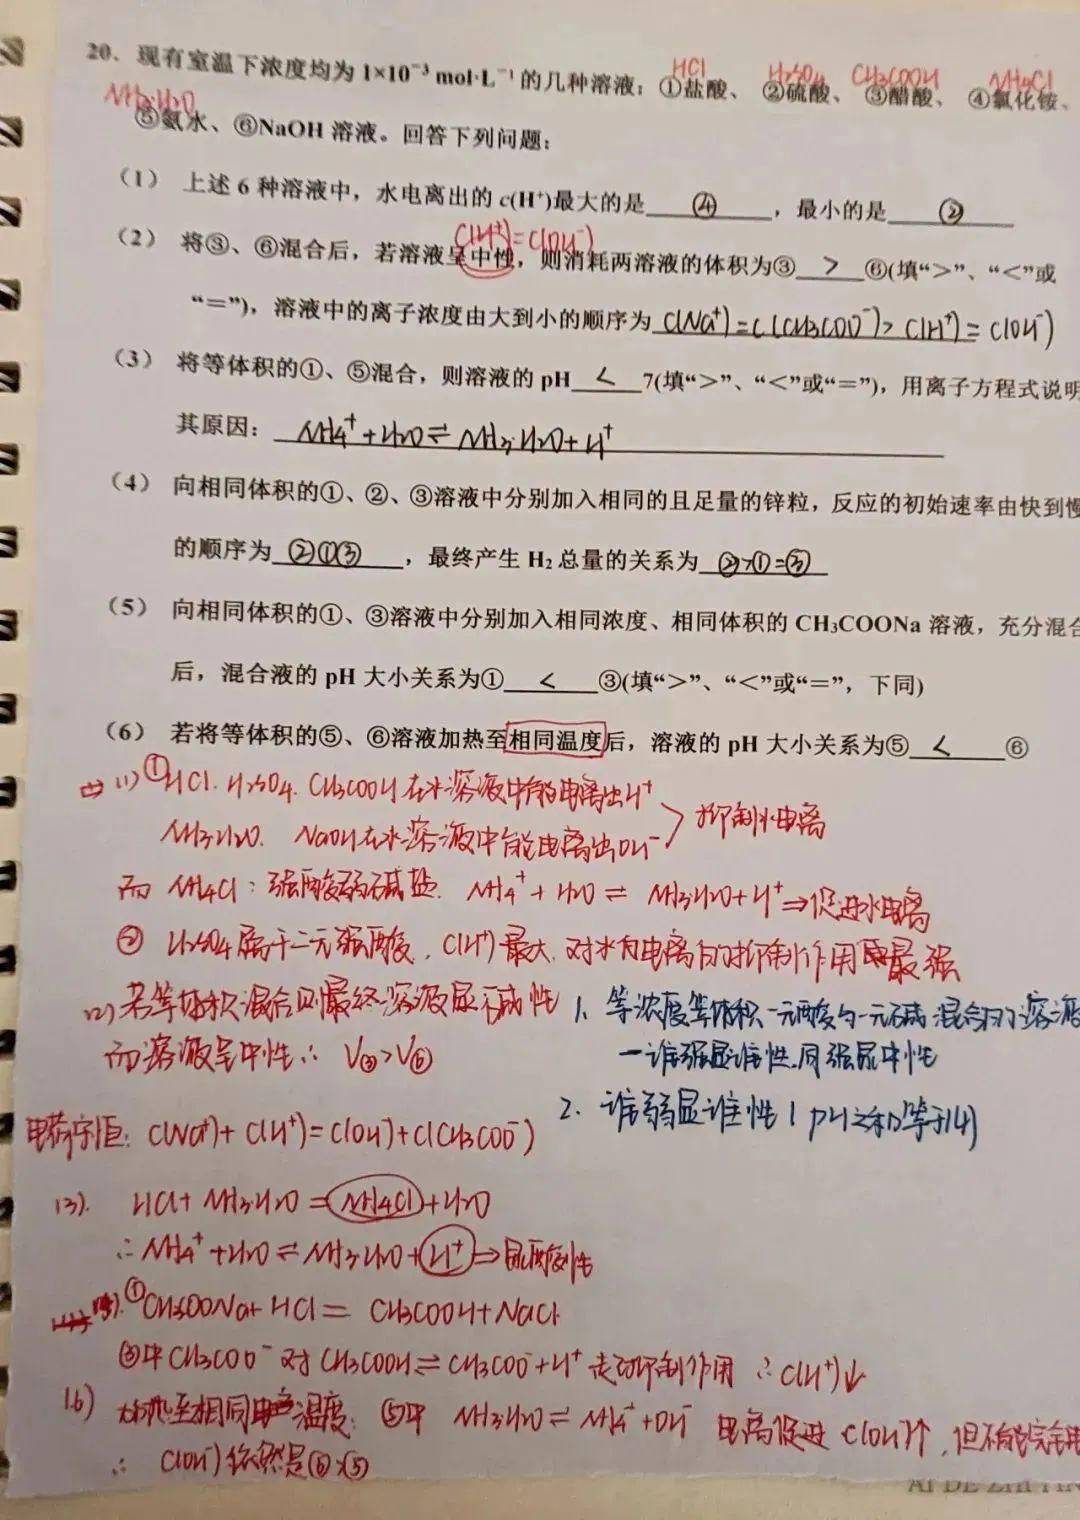 HCl H₂SO₄ CH₃COOH NH₄Cl
20. 现有室温下浓度均为 1×10⁻³ mol·L⁻¹ 的几种溶液：①盐酸、 ②硫酸、 ③醋酸、 ④氯化铵、
NH₃·H₂O
⑤氨水、⑥NaOH 溶液。回答下列问题：
(1) 上述 6 种溶液中，水电离出的 c(H⁺)最大的是 ④ ，最小的是 ②
C(H⁺)=C(OH⁻)
(2) 将③、⑥混合后，若溶液呈中性，则消耗两溶液的体积为③ > ⑥(填“>”、“<”或
“=”)，溶液中的离子浓度由大到小的顺序为 C(Na⁺)=C(CH₃COO⁻)>C(H⁺)=C(OH⁻)
(3) 将等体积的①、⑤混合，则溶液的 pH < 7(填“>”、“<”或“=”)，用离子方程式说明
其原因： NH₄⁺+H₂O⇌NH₃·H₂O+H⁺
(4) 向相同体积的①、②、③溶液中分别加入相同的且足量的锌粒，反应的初始速率由快到慢
的顺序为 ②①③ ，最终产生 H₂ 总量的关系为 ②>①=③
(5) 向相同体积的①、③溶液中分别加入相同浓度、相同体积的 CH₃COONa 溶液，充分混合
后，混合液的 pH 大小关系为① < ③(填“>”、“<”或“=”，下同)
(6) 若将等体积的⑤、⑥溶液加热至相同温度后，溶液的 pH 大小关系为⑤ < ⑥
(1) ①HCl. H₂SO₄. CH₃COOH在水溶液中能电离出H⁺
NH₃·H₂O. NaOH在水溶液中能电离出OH⁻ 抑制水电离
而 NH₄Cl：强酸弱碱盐. NH₄⁺+H₂O⇌NH₃·H₂O+H⁺⇒促进水电离
② H₂SO₄属于二元强酸，C(H⁺)最大. 对水的电离的抑制作用最强
(2) 若等体积混合则最终溶液显碱性
而溶液呈中性∴ V③>V⑥
1. 等浓度等体积一元酸与一元碱混合的溶液
—谁强显谁性.同强显中性
2. 谁弱显谁性(pH之和等于14)
电荷守恒：C(Na⁺)+C(H⁺)=C(OH⁻)+C(CH₃COO⁻)
(3). HCl+NH₃·H₂O=NH₄Cl+H₂O
∴NH₄⁺+H₂O⇌NH₃·H₂O+H⁺⇒显酸性
(5).①CH₃COONa+HCl=CH₃COOH+NaCl
③中CH₃COO⁻对CH₃COOH⇌CH₃COO⁻+H⁺起到抑制作用 ∴C(H⁺)↓
(6) 加热至相同温度：⑤中 NH₃·H₂O⇌NH₄⁺+OH⁻ 电离促进 C(OH⁻)↑，但不能完全电
∴ C(OH⁻)依然是⑥>⑤